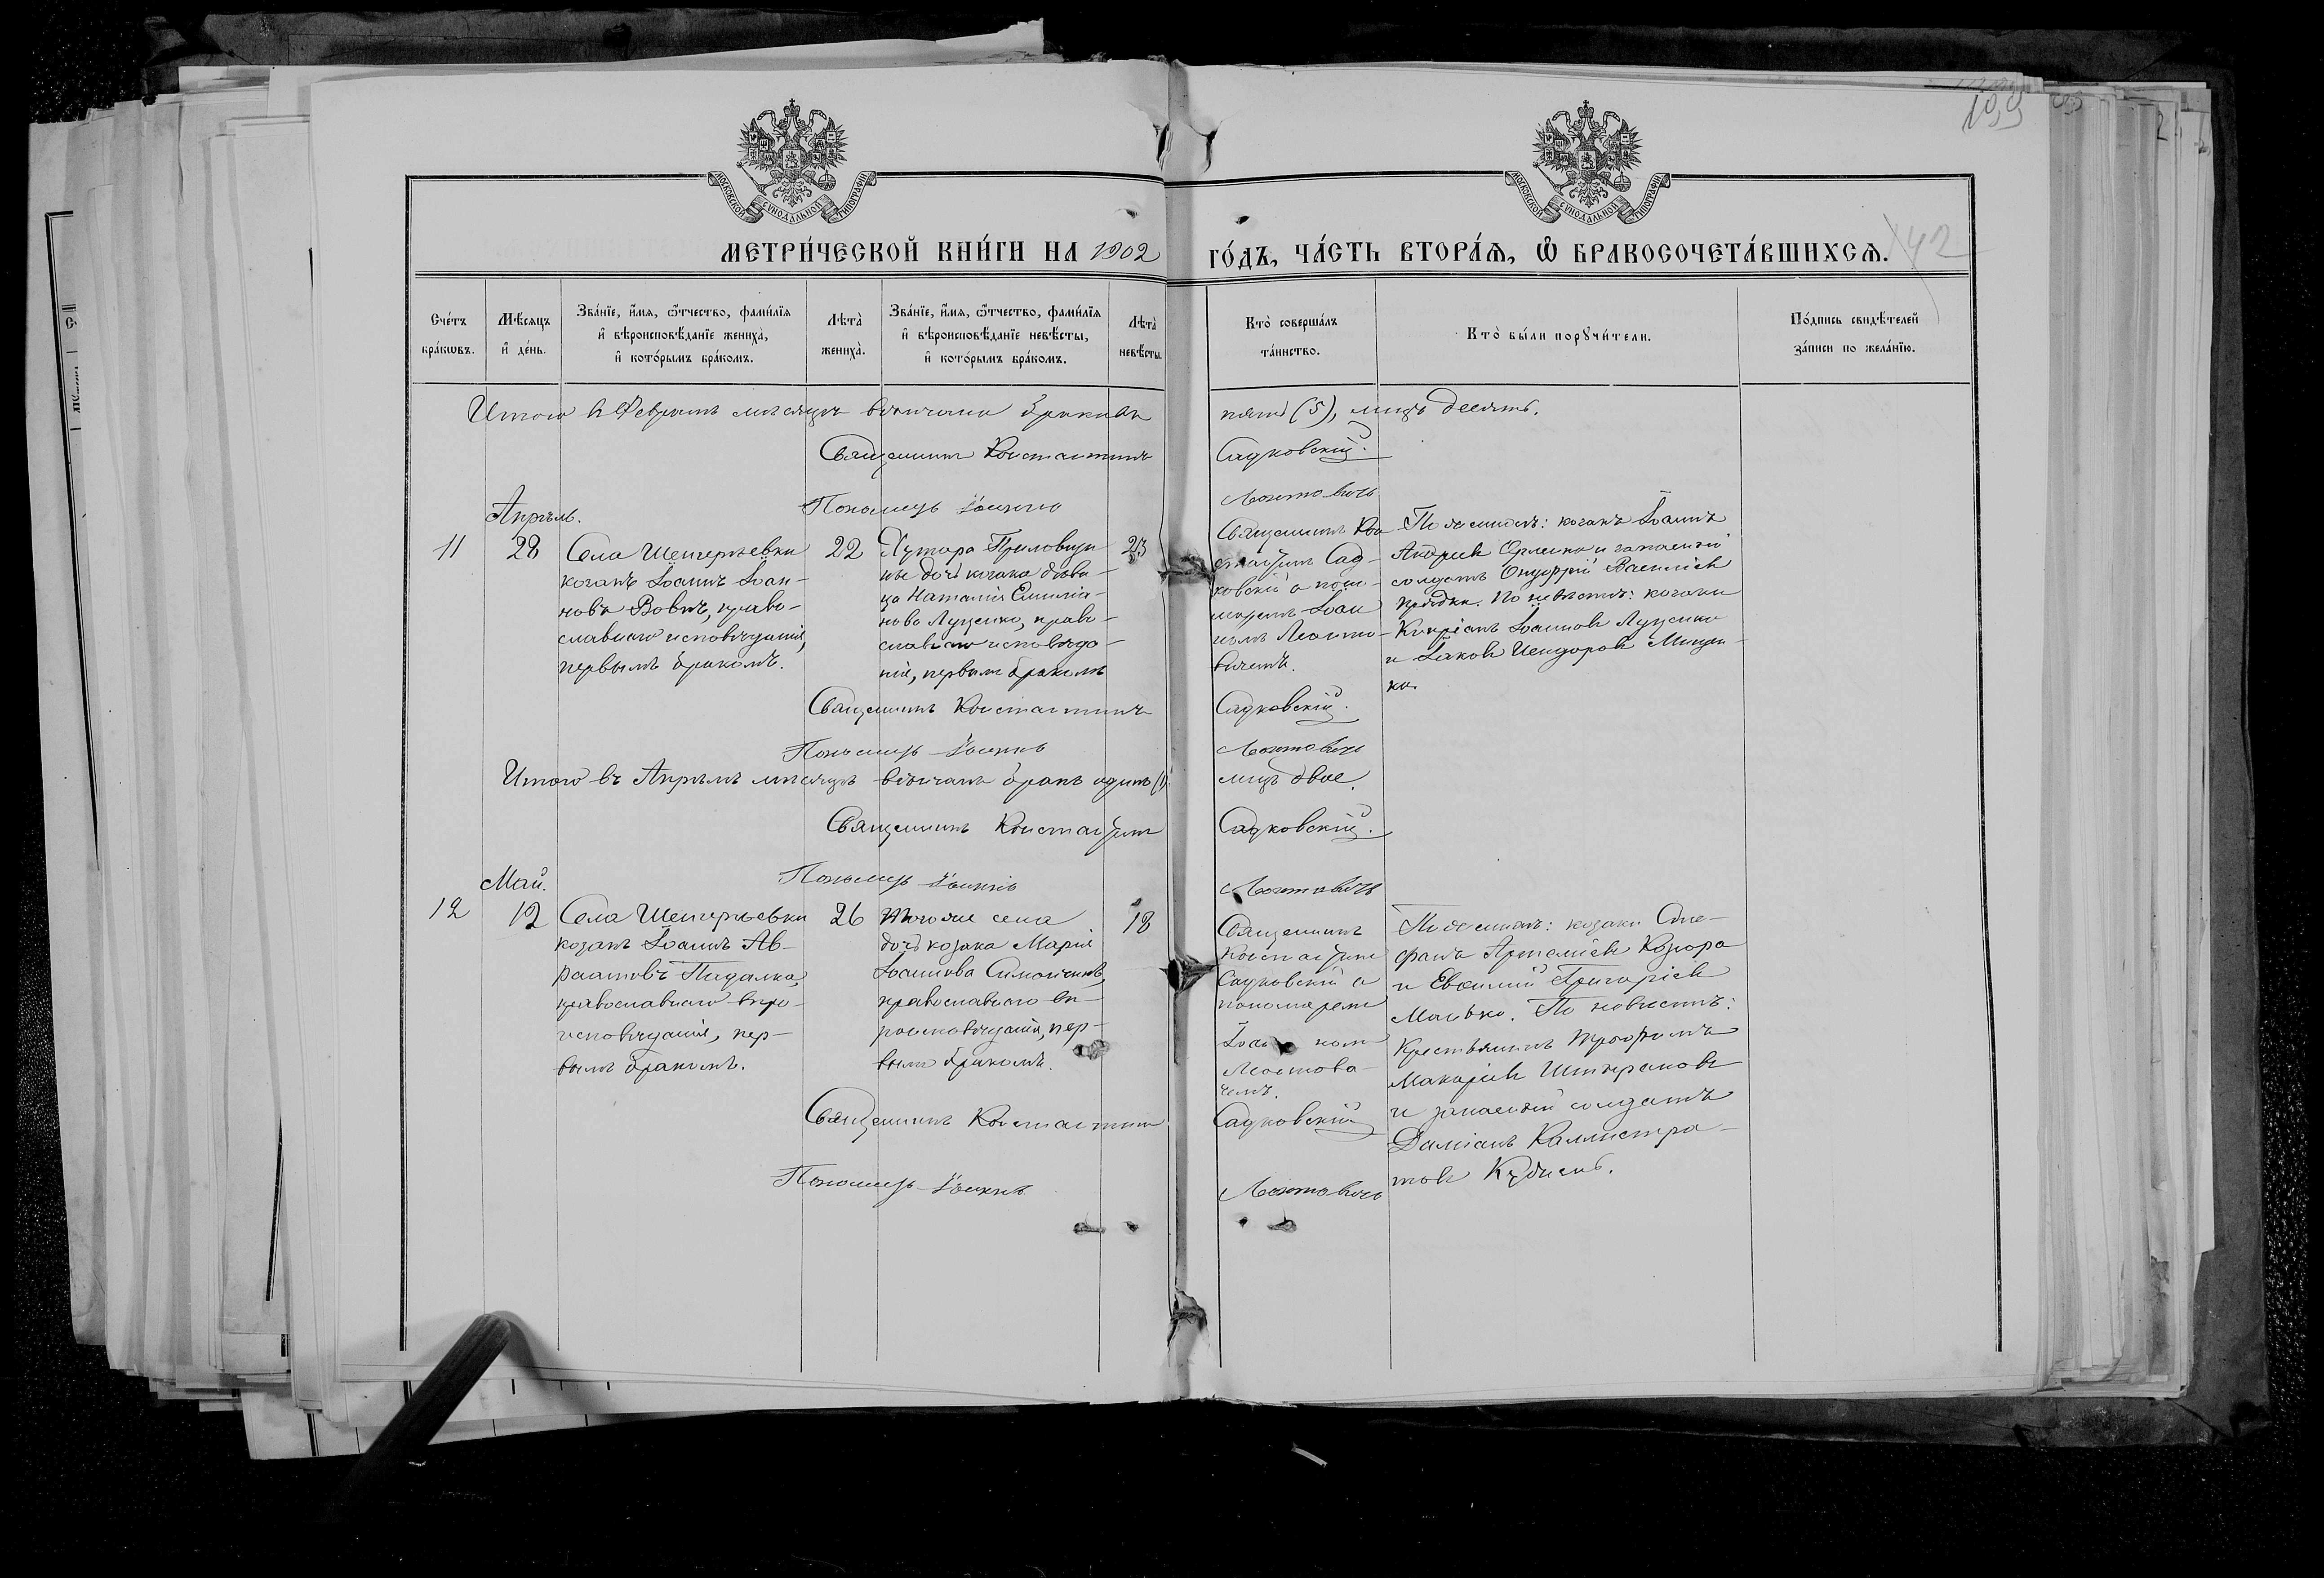 МОСКОВСКОЙ СѴНОДАЛЬНОЙ ТИПОГРАФІИ
МОСКОВСКОЙ СѴНОДАЛЬНОЙ ТИПОГРАФІИ
199
42
МЕТРИ́ЧЕСКОЙ КНИ́ГИ НА 1902 ГО́ДЪ, ЧА́СТЬ ВТОРА́Ѧ, Ѡ҆ БРАКОСОЧЕТА́ВШИХСѦ.
Сче́тъ бра́кѡвъ.
Мѣ́сѧцъ и҆ де́нь.
Зва́нїе, и҆́мѧ, ѻ҆́тчество, фамѝлїѧ
и҆ вѣроисповѣ́данїе жениха̀,
и҆ кото́рымъ бра́комъ.
Лѣта̀ жениха̀.
Зва́нїе, и҆́мѧ, ѻ҆́тчество, фамѝлїѧ
и҆ вѣроисповѣ́данїе невѣ́сты,
и҆ кото́рымъ бра́комъ.
Лѣта̀ невѣ́сты.
Кто̀ соверша́лъ
та́инство.
Кто̀ бы́ли порꙋчи́тели.
По́дпись свидѣ́телей
за́писи по жела́нїю.
Итого в Феврале месяце венчано браковъ пять (5), лицъ десять.
Священникъ Константинъ Садковскій.
Пономарь Іоаннъ Леонтовичъ
Апрѣль.
11
28
Села Шенгерѣевки
козакъ Іоаннъ Іоан-
новъ Вовкъ, право-
славнаго исповѣданія,
первымъ бракомъ.
22
Хутора Приловщи
ны дочь козака дѣви-
ца Наталія Емилія-
нова Луценко, право-
славнаго исповѣда-
нія, первымъ бракомъ
23
Священникъ Кон
стантинъ Сад-
ковскій с поно-
маремъ Іоан
номъ Леонто-
вичемъ.
По женихѣ: козакъ Іоаннъ
Андреевъ Орленко и запасный
солдатъ Онуфрій Васильевъ
Прядка. По невѣстѣ: козаки
Кипріанъ Іоанновъ Луценко
и Іаковъ Исидоровъ
ко.
Священникъ Константинъ Садковскій.
Пономарь Іоаннъ Леонтовичъ
Итого въ Апрѣлѣ мѣсяцѣ вѣнчанъ бракъ одинъ (1) лицъ двое.
Священникъ Константинъ Садковскій.
Пономарь Іоаннъ Леонтовичъ
Май.
12
12
Села Шенгерѣевки
козакъ Іоаннъ Ав-
раамовъ Падалка,
православнаго вѣро-
исповѣданія, пер-
вымъ бракомъ.
26
Того же села
дочь козака Марія
Іоаннова
православнаго вѣ-
роисповѣданія, пер-
вымъ бракомъ.
18
Священникъ
Константинъ
Садковскій с
пономаремъ
Іоанномъ
Леонтови-
чемъ.
По женихѣ: козаки Сте-
фанъ Артеміевъ
и Евфимій Григоріевъ
Малько. По невѣстѣ:
крестьянинъ Трофимъ
Макаріевъ
и запасный солдатъ
Даміанъ Каллистра-
товъ
Священникъ Константинъ Садковскій
Пономарь Іоаннъ Леонтовичъ